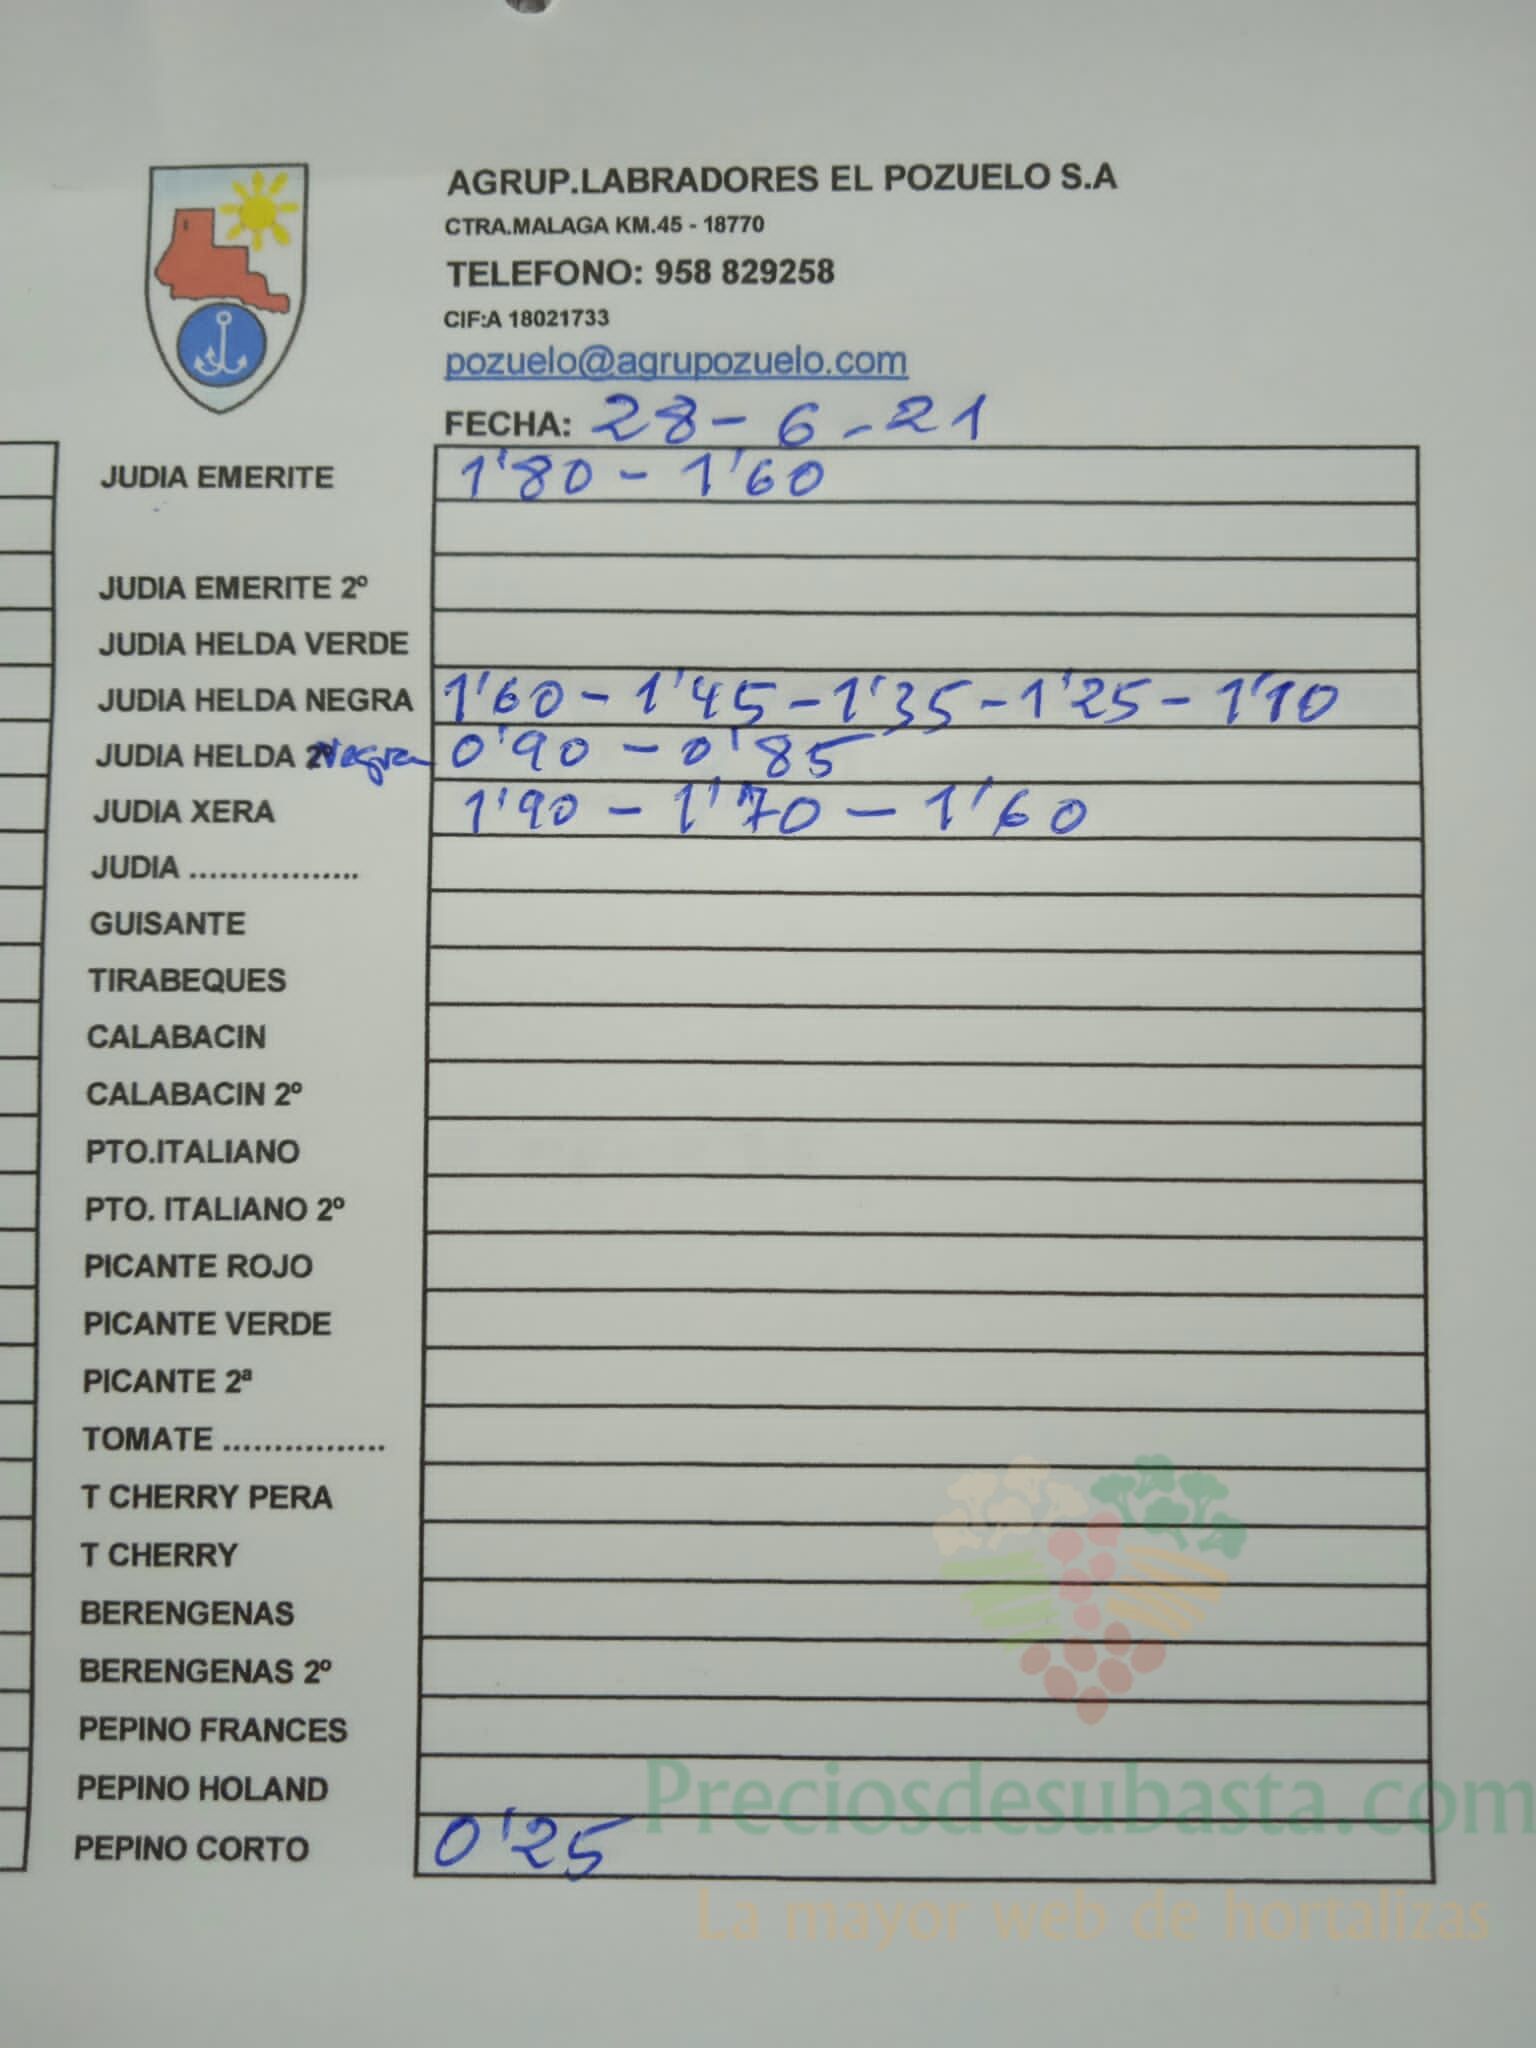 AGRUP.LABRADORES EL POZUELO S.A
CTRA.MALAGA KM.45 - 18770
TELEFONO: 958 829258
CIF:A 18021733
pozuelo@agrupozuelo.com
FECHA: 28-6-21
JUDIA EMERITE 1'80 - 1'60
JUDIA EMERITE 2º
JUDIA HELDA VERDE
JUDIA HELDA NEGRA 1'60 - 1'45 - 1'35 - 1'25 - 1'10
JUDIA HELDA 2º Negra 0'90 - 0'85
JUDIA XERA 1'90 - 1'70 - 1'60
JUDIA .................
GUISANTE
TIRABEQUES
CALABACIN
CALABACIN 2º
PTO.ITALIANO
PTO. ITALIANO 2º
PICANTE ROJO
PICANTE VERDE
PICANTE 2ª
TOMATE ................
T CHERRY PERA
T CHERRY
BERENGENAS
BERENGENAS 2º
PEPINO FRANCES
PEPINO HOLAND
PEPINO CORTO 0'25
Preciosdesubasta.com
La mayor web de hortalizas